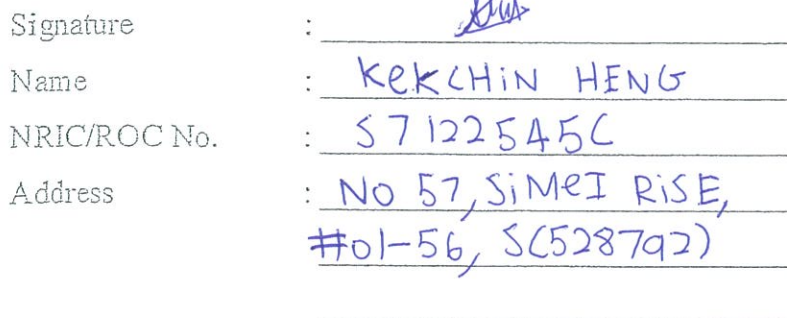 Signature :
Name : KekCHiN HENG
NRIC/ROC No. : S7122545C
Address : No 57, SiMeI RiSE,
#01-56, S(528792)